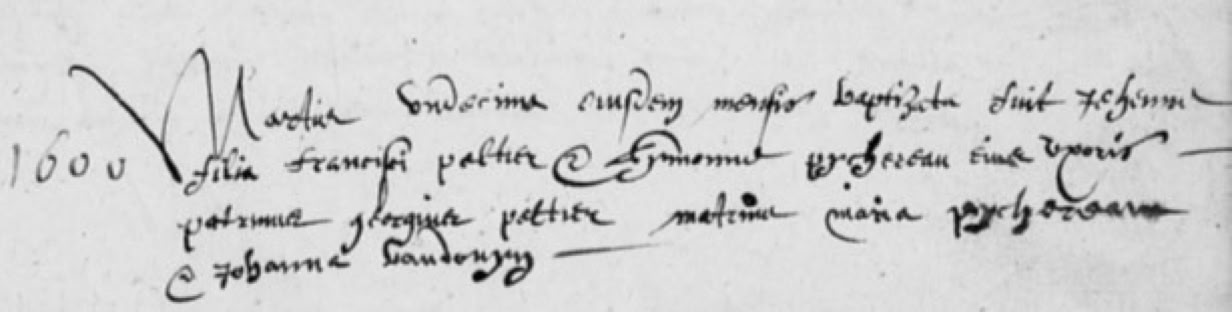 Martii undecima eiusdem mensis baptizata fuit Jehenna
1600 filia francisci peltier & Symonne pychereau eius uxoris
patrinus georgius peltier matrine maria pychereau
& Johanna